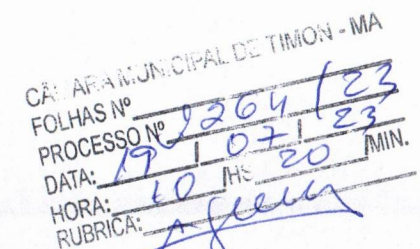 CÂMARA MUNICIPAL DE TIMON - MA
FOLHAS Nº
PROCESSO Nº 1264 / 23
DATA: 19 / 07 / 23
HORA: 10 HS 20 MIN.
RUBRICA: